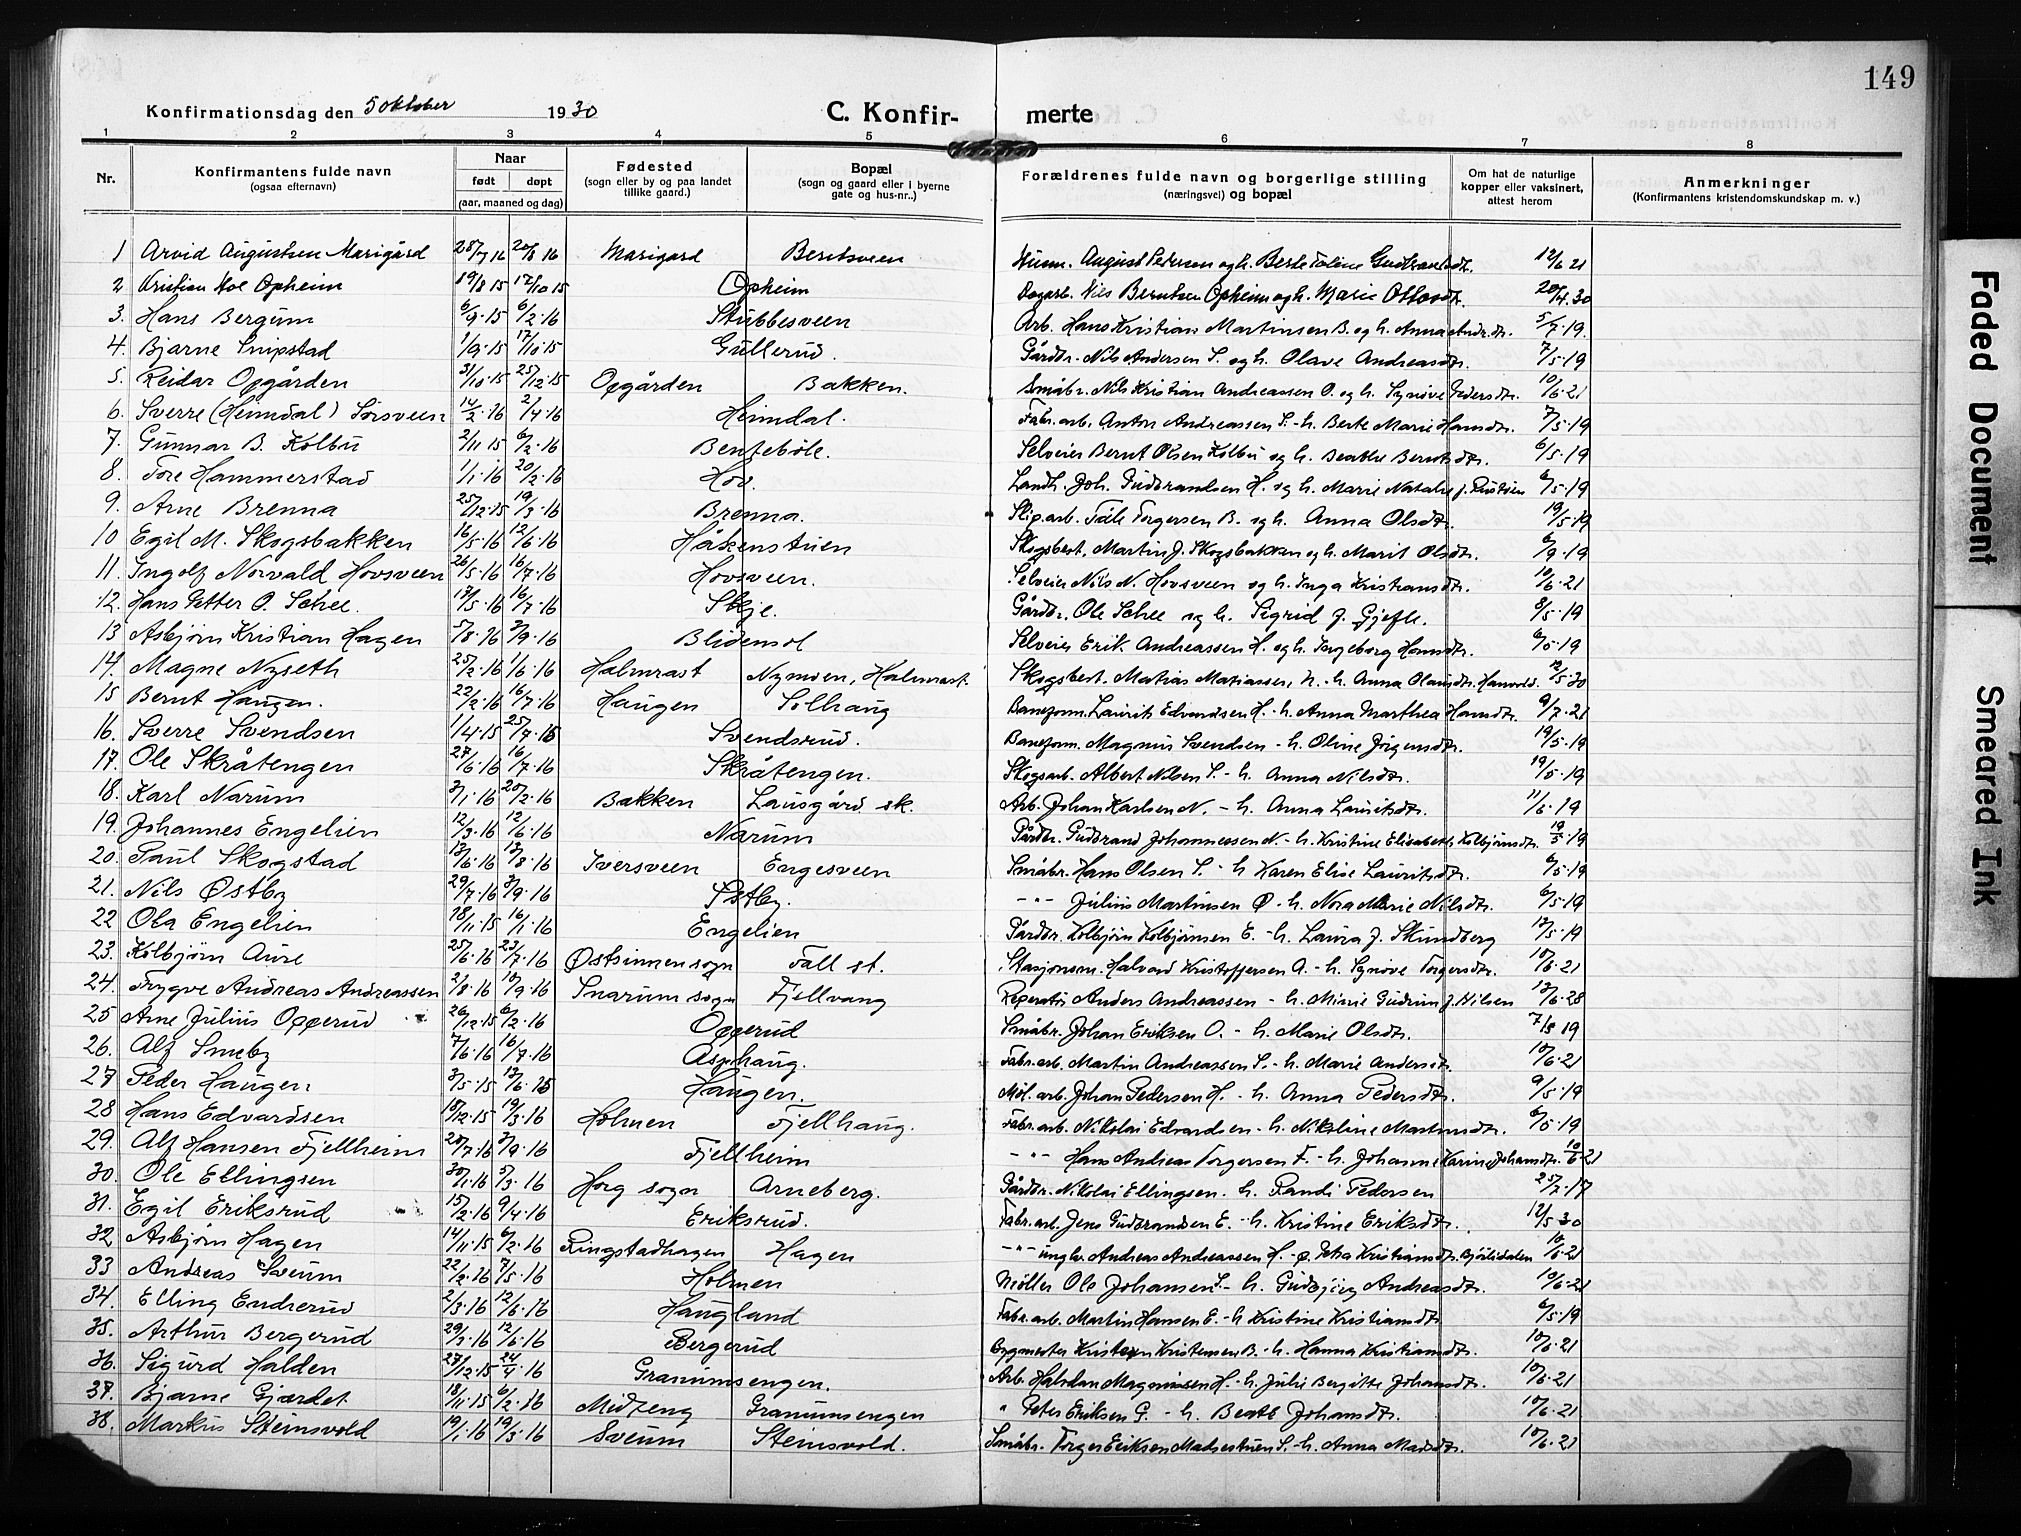 149
Konfirmationsdag den 5 oktober 1930
C. Konfirmerte
1 2 3 4 5 6 7 8
Nr. | Konfirmantens fulde navn (ogsaa efternavn) | Naar født døpt (aar, maaned og dag) | Fødested (sogn eller by og paa landet tillike gaard.) | Bopæl (sogn og gaard eller i byerne gate og hus-nr..) | Forældrenes fulde navn og borgerlige stilling (næringsvei) og bopæl | Om hat de naturlige kopper eller vaksinert, attest herom | Anmerkninger (Konfirmantens kristendomskundskap m. v.)
1 Arvid Augustsen Marigård 28/7 16 20/8 16 Marigård Beritsveen Husm. August Pedersen og h. Berte Toline Gudbrandsdt. 12/6 21
2 Kristian Opheim 19/8 15 17/10 15 Opheim Dagarb. Nils Berntsen Opheim og h. Marie Ottosdt. 20/4.30
3. Hans Bergum 6/9.15 6/2.16 Stubbesveen Arb. Hans Kristian Martinsen B. og h. Anna Andr.dtr. 5/7.19.
4. Bjarne Snipstad 1/9.15 17/10.15 Gullerud. Gårdbr. Nils Andersen S. og h. Olave Andreasdt. 7/5.19
5. Reidar Opgården 31/10.15 25/12.15 Opgården Bakken. Småbr. Nils Kristian Andreassen O. og h. Synøve Pedersdtr. 10/6.21
6. Sverre (Heimdal) Sørsveen 14/2.16 2/4.16 Heimdal. Fabr. arb. Anton Andreassen S. - h. Berte Marie Hansdtr. 7/5.19
7. Gunnar B. Kolbu 2/11 15 6/2.16 Bentebøle. Selveier Bernt Olsen Kolbu og h. Beathe Berntsdtr. 6/5.19
8. Tore Hammerstad 1/1.16 20/2.16 Hov. Landh. Joh. Gudbrandsen H. og h. Marie Natalie f. 6/5.19
9. Arne Brenna 25/12.15 19/3.16 Brenna. Slip.arb. Torgersen B. og h. Anna Olsdtr. 19/5.19
10 Egil M. Skogsbakken 16/5.16 12/6.16 Håkenstuen Skogsbest. Martin J. Skogsbakken og h. Marit Olsdtr. 6/9.19
11. Ingolf Norvald Hovsveen 26/5.16 16/7.16 Hovsveen. Selveier Nils N. Hovsveen og h. Inga Kristiansdtr. 10/6.21
12. Hans Petter O. Schee. 17/5.16 16/7.16 Skje. Gårdbr. Ole Schee og h. Sigrid f. Gjefle. 8/5.19
13 Asbjørn Kristian Hagen 5/8.16 3/9.16 Blidensol Selveier Erik Andreassen H. og h. Ingeborg Hansdtr. 6/5.19
14. Magne Nyseth 25/2.16 1/6.16 Halmrast Nymoen, Halmrast. Skogsbest. Matias Matiassen, N. - h. Anna Olausdtr. 12/5.30
15 Bernt Haugen. 22/2.16 16/7.16 Haugen Solhaug Baneform. Laurits Edvardsen H. - h. Anna Marthea Hansdtr. 9/7.21
16. Sverre Svendsen 1/4.15 25/7.15 Svendsrud. Baneform. Magnus Svendsen - h. Oline Jørgensdtr. 19/5.19
17. Ole Skråtengen 27/6.16 16/7.16 Skråtengen. Skogsarb. Albert Nilsen S. - h. Anna Nilsdtr. 19/5.19
18. Karl Narum 3/1.16 20/2.16 Bakken Lausgård sk. Arb. Johan Karlsen N. - h. Anna Lauritsdtr. 11/6.19
19. Johannes Engelien 12/3.16 12/6.16 Narum Gårdbr. Gudbrand Johannessen N. - h. Kristine Elisabeth Kolbjørnsdtr. 19/5.19
20. Paul Skogstad 13/6.16 13/8.16 Iversveen Engesveen Småbr. Hans Olsen S. - h. Karen Elise Lauritsdtr. 6/5.19
21. Nils Østby 29/7.16 3/9.16 Østby. -"- Julius Martinsen Ø - h. Nora Marie Nilsdtr. 6/5.19
22 Ola Engelien 18/11.15 16/1.16 Engelien Gårdbr. Kolbjørn Kolbjørnsen E. - h. Laura f. Skundberg 13/5.19
23. Kolbjørn Aure 25/6.16 23/7.16 Østsinnen sogn Fall st. Stasjonsm. Halvard Kristoffersen A. - h. Synøve Torgersdtr. 10/6.21
24. Trygve Andreas Andreassen 2/8.16 10/9.16 Snarum sogn Fjellvang Reperatør Anders Andreassen - h. Marie Gudrun f. Nilsen 13/6.28
25 Arne Julius Opperud 26/12.15 6/2.16 Opperud Småbr. Johan Eriksen O. - h. Marie Olsdtr. 7/5 19
26. Alf Smeby 7/6.16 16/7.16 Asphaug. Fabr. arb. Martin Andreassen S. - h. Marie Andersdtr. 10/6.21
27 Peder Haugen 3/5.15 13/6.15 Haugen. Møl. arb. Johan Pedersen H. - h. Anna Pedersdtr. 9/5.19
28 Hans Edvardsen 18/12.15 19/3.16 Holmen Fjellhaug. Fabr. arb. Nikolai Edvardsen - h. Nikoline Martinsdtr. 6/5.19
29. Alf Hansen Fjellheim 20/7.16 3/9.16 Fjellheim -"- Hans Andreas Torgersen F. - h. Johanne Karine Johansdtr. 10/6.21
30. Ole Ellingsen 30/1.16 5/3.16 Horg sogn Arneberg. Gårdbr. Nikolai Ellingsen. h. Randi Pedersen 25/7.17
31. Egil Eriksrud 15/2.16 9/4.16 Eriksrud. Fabr. arb. Jens Gudbrandsen E. - h. Kristine Eriksdtr. 12/5 30
32 Asbjørn Hagen 14/11.15 6/2.16 Ringstadhagen Hagen -"- ungkr. Andreas Andreassen H. - p. Petra Kristiansdtr. 10/6.21
33 Andreas Sveum 22/2.16 7/5.16 Holmen Møller Ole Johansen S. - h. Gudbjørg Andreasdtr. 10/6.21
34. Elling Enderud 2/3.16 12/6.16 Haugland Fabr. arb. Martin Hansen E. - h. Kristine Kristiansdtr. 6/5.19
35. Arthur Bergerud 29/3.16 12/6.16 Bergerud Bygmester Kristen Kristensen B. - h. Hanna Kristiansdtr. 10/6.21
36. Sigurd Halden 27/12.15 24/4.16 Granumsengen. Arb. Halvdan Magnussen H. - h. Julie Bergitte Johansdtr. 10/6.21
37. Bjarne Gjærdet 18/11.15 6/2.16 Midteng Granumsengen " Peter Eriksen G. - h. Beate Johansdtr. 10/6.21
38. Markus Steinsvold 19/1.16 19/3.16 Sveum Steinsvold. Småbr. Torger Eriksen Madsestuen S. - h. Anna Madsdtr. 10/6.21
Faded Document
Smeared Ink